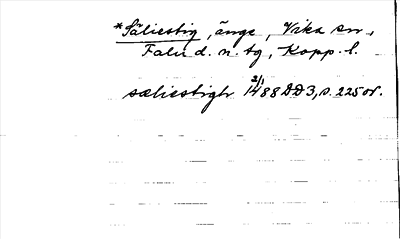 *Säliestig, änge, Vika sn.,
Falu d. n. tg, Kopp. l.
sæliestigh 2/1 1488 DD3, s. 225 or.